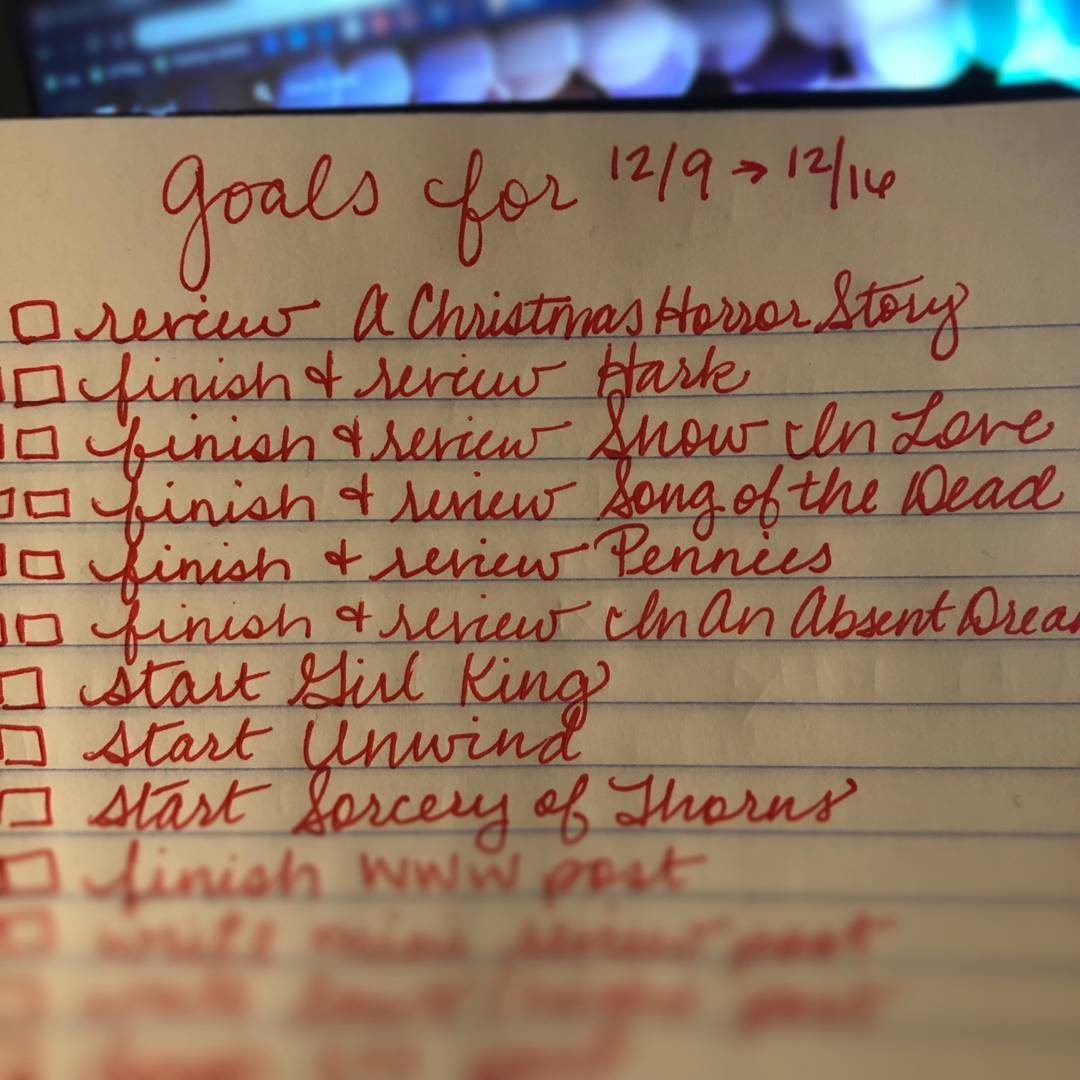 goals for 12/9 → 12/16
review A Christmas Horror Story
finish & review Hark
finish & review Snow In Love
finish & review Song of the Dead
finish & review Pennies
finish & review In An Absent Drea
start Girl King
start Unwind
start Sorcery of Thorns
finish WWW post
write mini review post
post